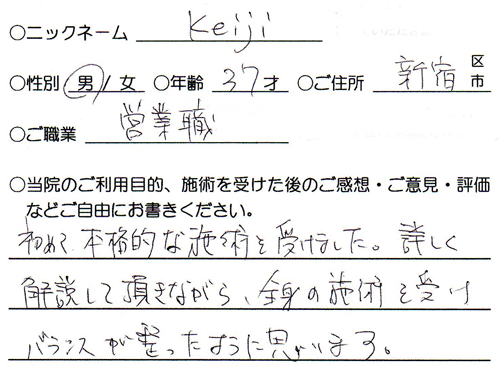 ○ニックネーム Keiji
○性別 男 / 女 ○年齢 37才 ○ご住所 新宿 区市
○ご職業 営業職
○当院のご利用目的、施術を受けた後のご感想・ご意見・評価
などご自由にお書きください。
初めて本格的な施術を受けました。詳しく
解説して頂きながら、全身の施術を受け
バランスが整ったように思います。